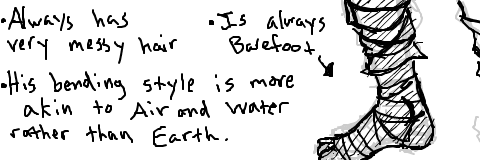 •Always has
very messy hair
•Is always
Barefoot
•His bending style is more
akin to Air and Water
rather than Earth.